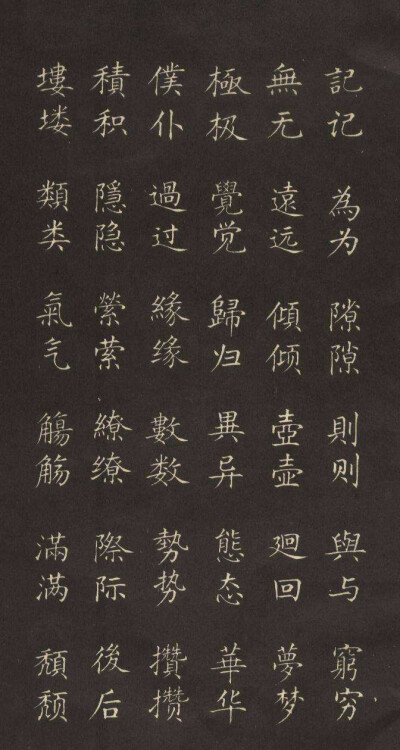 記记為为隙隙則则與与窮穷
無无遠远傾倾壺壶廻回夢梦
極极覺觉歸归異异態态華华
僕仆過过緣缘數数勢势攢攒
積积隱隐縈萦繚缭際际後后
塿𪣻類类氣气觴觞滿满頹颓